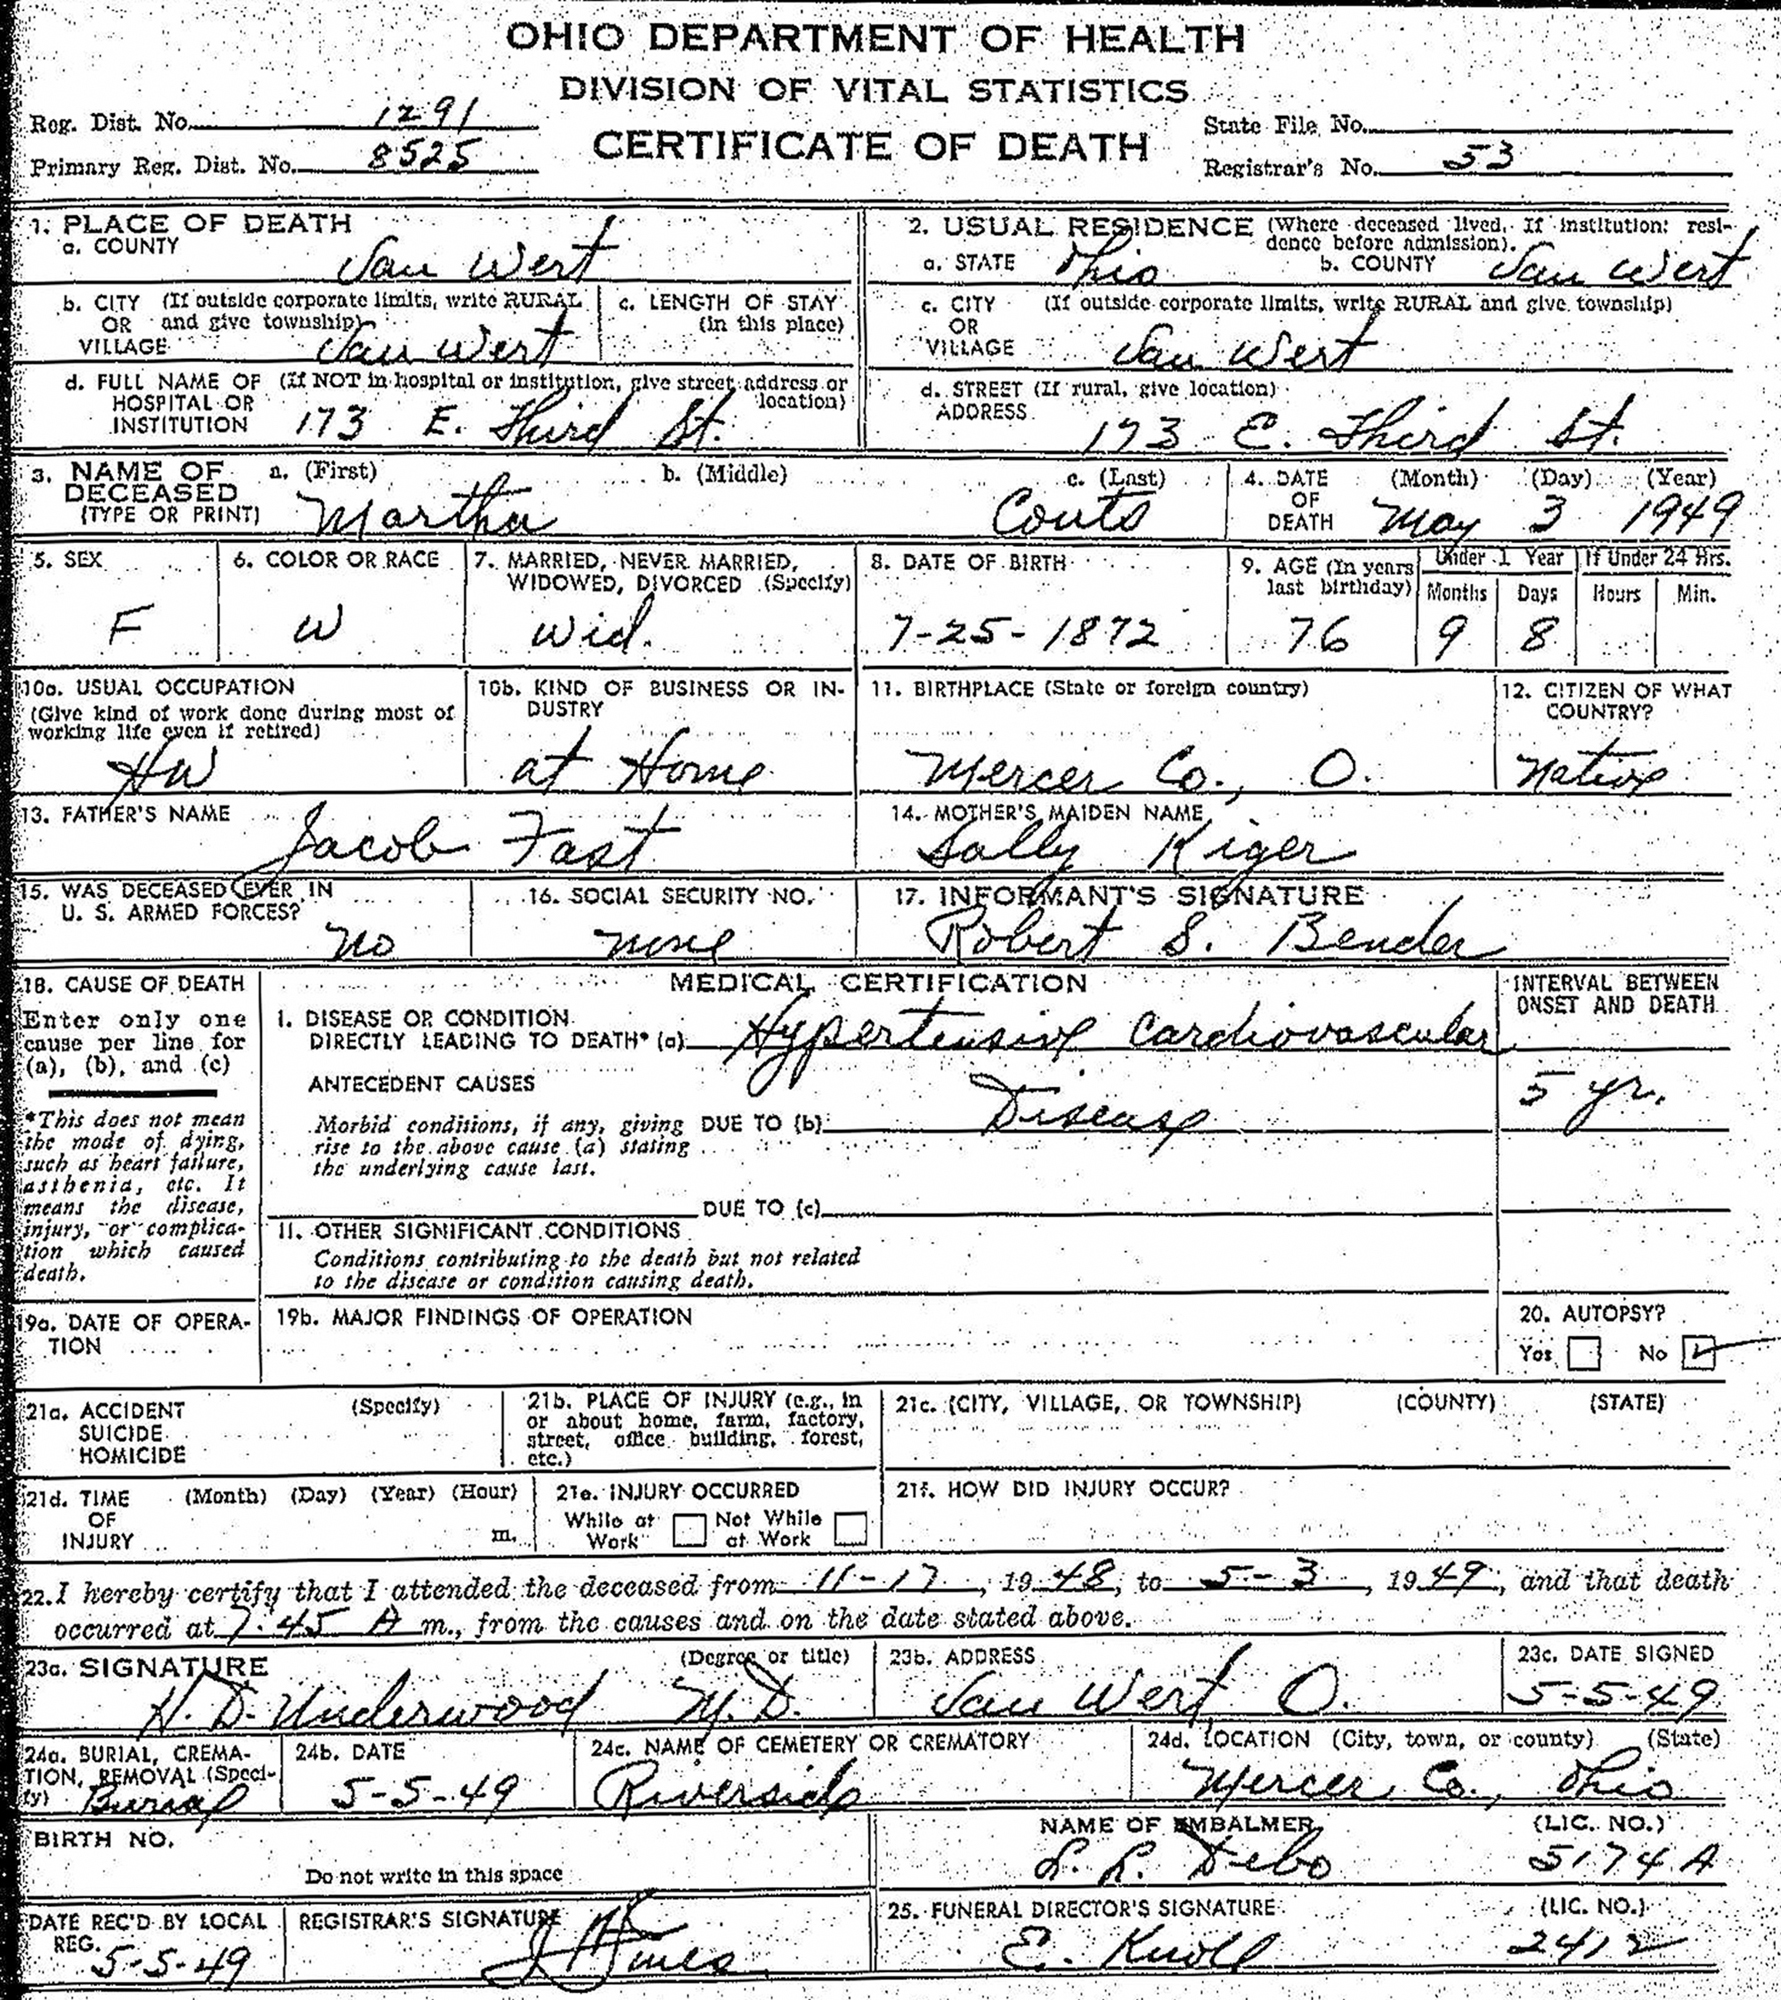 OHIO DEPARTMENT OF HEALTH
DIVISION OF VITAL STATISTICS
CERTIFICATE OF DEATH
Reg. Dist. No. 1291
Primary Reg. Dist. No. 8525
State File No.
Registrar's No. 53
1. PLACE OF DEATH
a. COUNTY
Van Wert
2. USUAL RESIDENCE (Where deceased lived. If institution: resi-
dence before admission).
a. STATE Ohio b. COUNTY Van Wert
b. CITY (If outside corporate limits, write RURAL
OR and give township)
VILLAGE Van Wert
c. LENGTH OF STAY
(in this place)
c. CITY (If outside corporate limits, write RURAL and give township)
OR
VILLAGE Van Wert
d. FULL NAME OF (If NOT in hospital or institution, give street address or
HOSPITAL OR location)
INSTITUTION 173 E. Third St.
d. STREET (If rural, give location)
ADDRESS
173 E. Third St.
3. NAME OF a. (First) b. (Middle) c. (Last)
DECEASED
(TYPE OR PRINT) Martha Couts
4. DATE (Month) (Day) (Year)
OF
DEATH May 3 1949
5. SEX
F
6. COLOR OR RACE
W
7. MARRIED, NEVER MARRIED,
WIDOWED, DIVORCED (Specify)
Wid.
8. DATE OF BIRTH
7-25-1872
9. AGE (In years
last birthday)
76
Under 1 Year
Months Days
9 8
If Under 24 Hrs.
Hours Min.
10a. USUAL OCCUPATION
(Give kind of work done during most of
working life even if retired)
HW
10b. KIND OF BUSINESS OR IN-
DUSTRY
at Home
11. BIRTHPLACE (State or foreign country)
Mercer Co., O.
12. CITIZEN OF WHAT
COUNTRY?
Native
13. FATHER'S NAME
Jacob Fast
14. MOTHER'S MAIDEN NAME
Sally Kiger
15. WAS DECEASED EVER IN
U. S. ARMED FORCES?
No
16. SOCIAL SECURITY NO.
none
17. INFORMANT'S SIGNATURE
Robert S. Bender
18. CAUSE OF DEATH
Enter only one
cause per line for
(a), (b), and (c)
*This does not mean
the mode of dying,
such as heart failure,
asthenia, etc. It
means the disease,
injury, or complica-
tion which caused
death.
MEDICAL CERTIFICATION
I. DISEASE OR CONDITION
DIRECTLY LEADING TO DEATH* (a) Hypertensive Cardiovascular
ANTECEDENT CAUSES
Morbid conditions, if any, giving DUE TO (b) Disease
rise to the above cause (a) stating
the underlying cause last.
DUE TO (c)
II. OTHER SIGNIFICANT CONDITIONS
Conditions contributing to the death but not related
to the disease or condition causing death.
INTERVAL BETWEEN
ONSET AND DEATH
5 yr.
19a. DATE OF OPERA-
TION
19b. MAJOR FINDINGS OF OPERATION
20. AUTOPSY?
Yes No
21a. ACCIDENT (Specify)
SUICIDE
HOMICIDE
21b. PLACE OF INJURY (e.g., in
or about home, farm, factory,
street, office building, forest,
etc.)
21c. (CITY, VILLAGE, OR TOWNSHIP) (COUNTY) (STATE)
21d. TIME (Month) (Day) (Year) (Hour)
OF
INJURY m.
21e. INJURY OCCURRED
While at Not While
Work at Work
21f. HOW DID INJURY OCCUR?
22. I hereby certify that I attended the deceased from 11-17, 1948, to 5-3, 1949, and that death
occurred at 7:45 A m., from the causes and on the date stated above.
23a. SIGNATURE (Degree or title)
H. D. Underwood M.D.
23b. ADDRESS
Van Wert, O.
23c. DATE SIGNED
5-5-49
24a. BURIAL, CREMA-
TION, REMOVAL (Speci-
fy) Burial
24b. DATE
5-5-49
24c. NAME OF CEMETERY OR CREMATORY
Riverside
24d. LOCATION (City, town, or county) (State)
Mercer Co., Ohio
BIRTH NO.
Do not write in this space
NAME OF EMBALMER (LIC. NO.)
L. L. Debo 5174 A
DATE REC'D BY LOCAL
REG.
5-5-49
REGISTRAR'S SIGNATURE
25. FUNERAL DIRECTOR'S SIGNATURE (LIC. NO.)
E. Knoll 2412